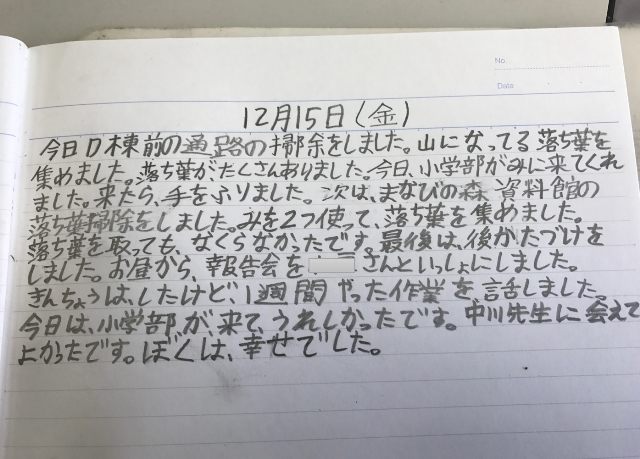 No.
Date
12月15日(金)
今日D棟前の通路の掃除をしました。山になってる落ち葉を
集めました。落ち葉がたくさんありました。今日、小学部がみに来てくれ
ました。来たら、手をふりました。次は、まなびの森 資料館の
落ち葉掃除をしました。みを2つ使って、落ち葉を集めました。
落ち葉を取っても、なくらなかったです。最後は、後かたづけを
しました。お昼から、報告会を さんといっしょにしました。
きんちょうは、したけど、1週間やった作業を話しました。
今日は、小学部が来て、うれしかったです。中川先生に会えて
よかったです。ぼくは、幸せでした。